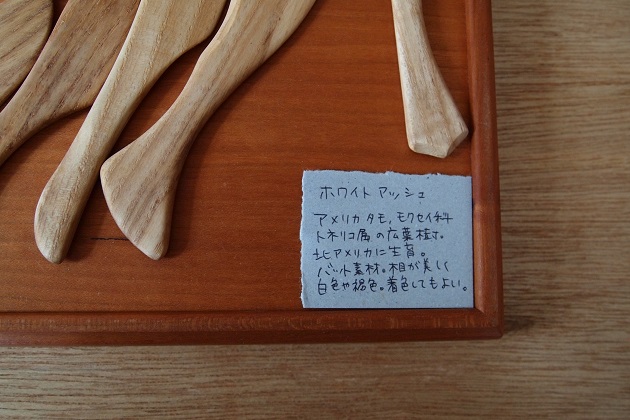 ホワイト アッシュ
アメリカ タモ、モクセイ科
トネリコ属の広葉樹。
北アメリカに生育。
バット素材。木目が美しく
白色や褐色。着色してもよい。